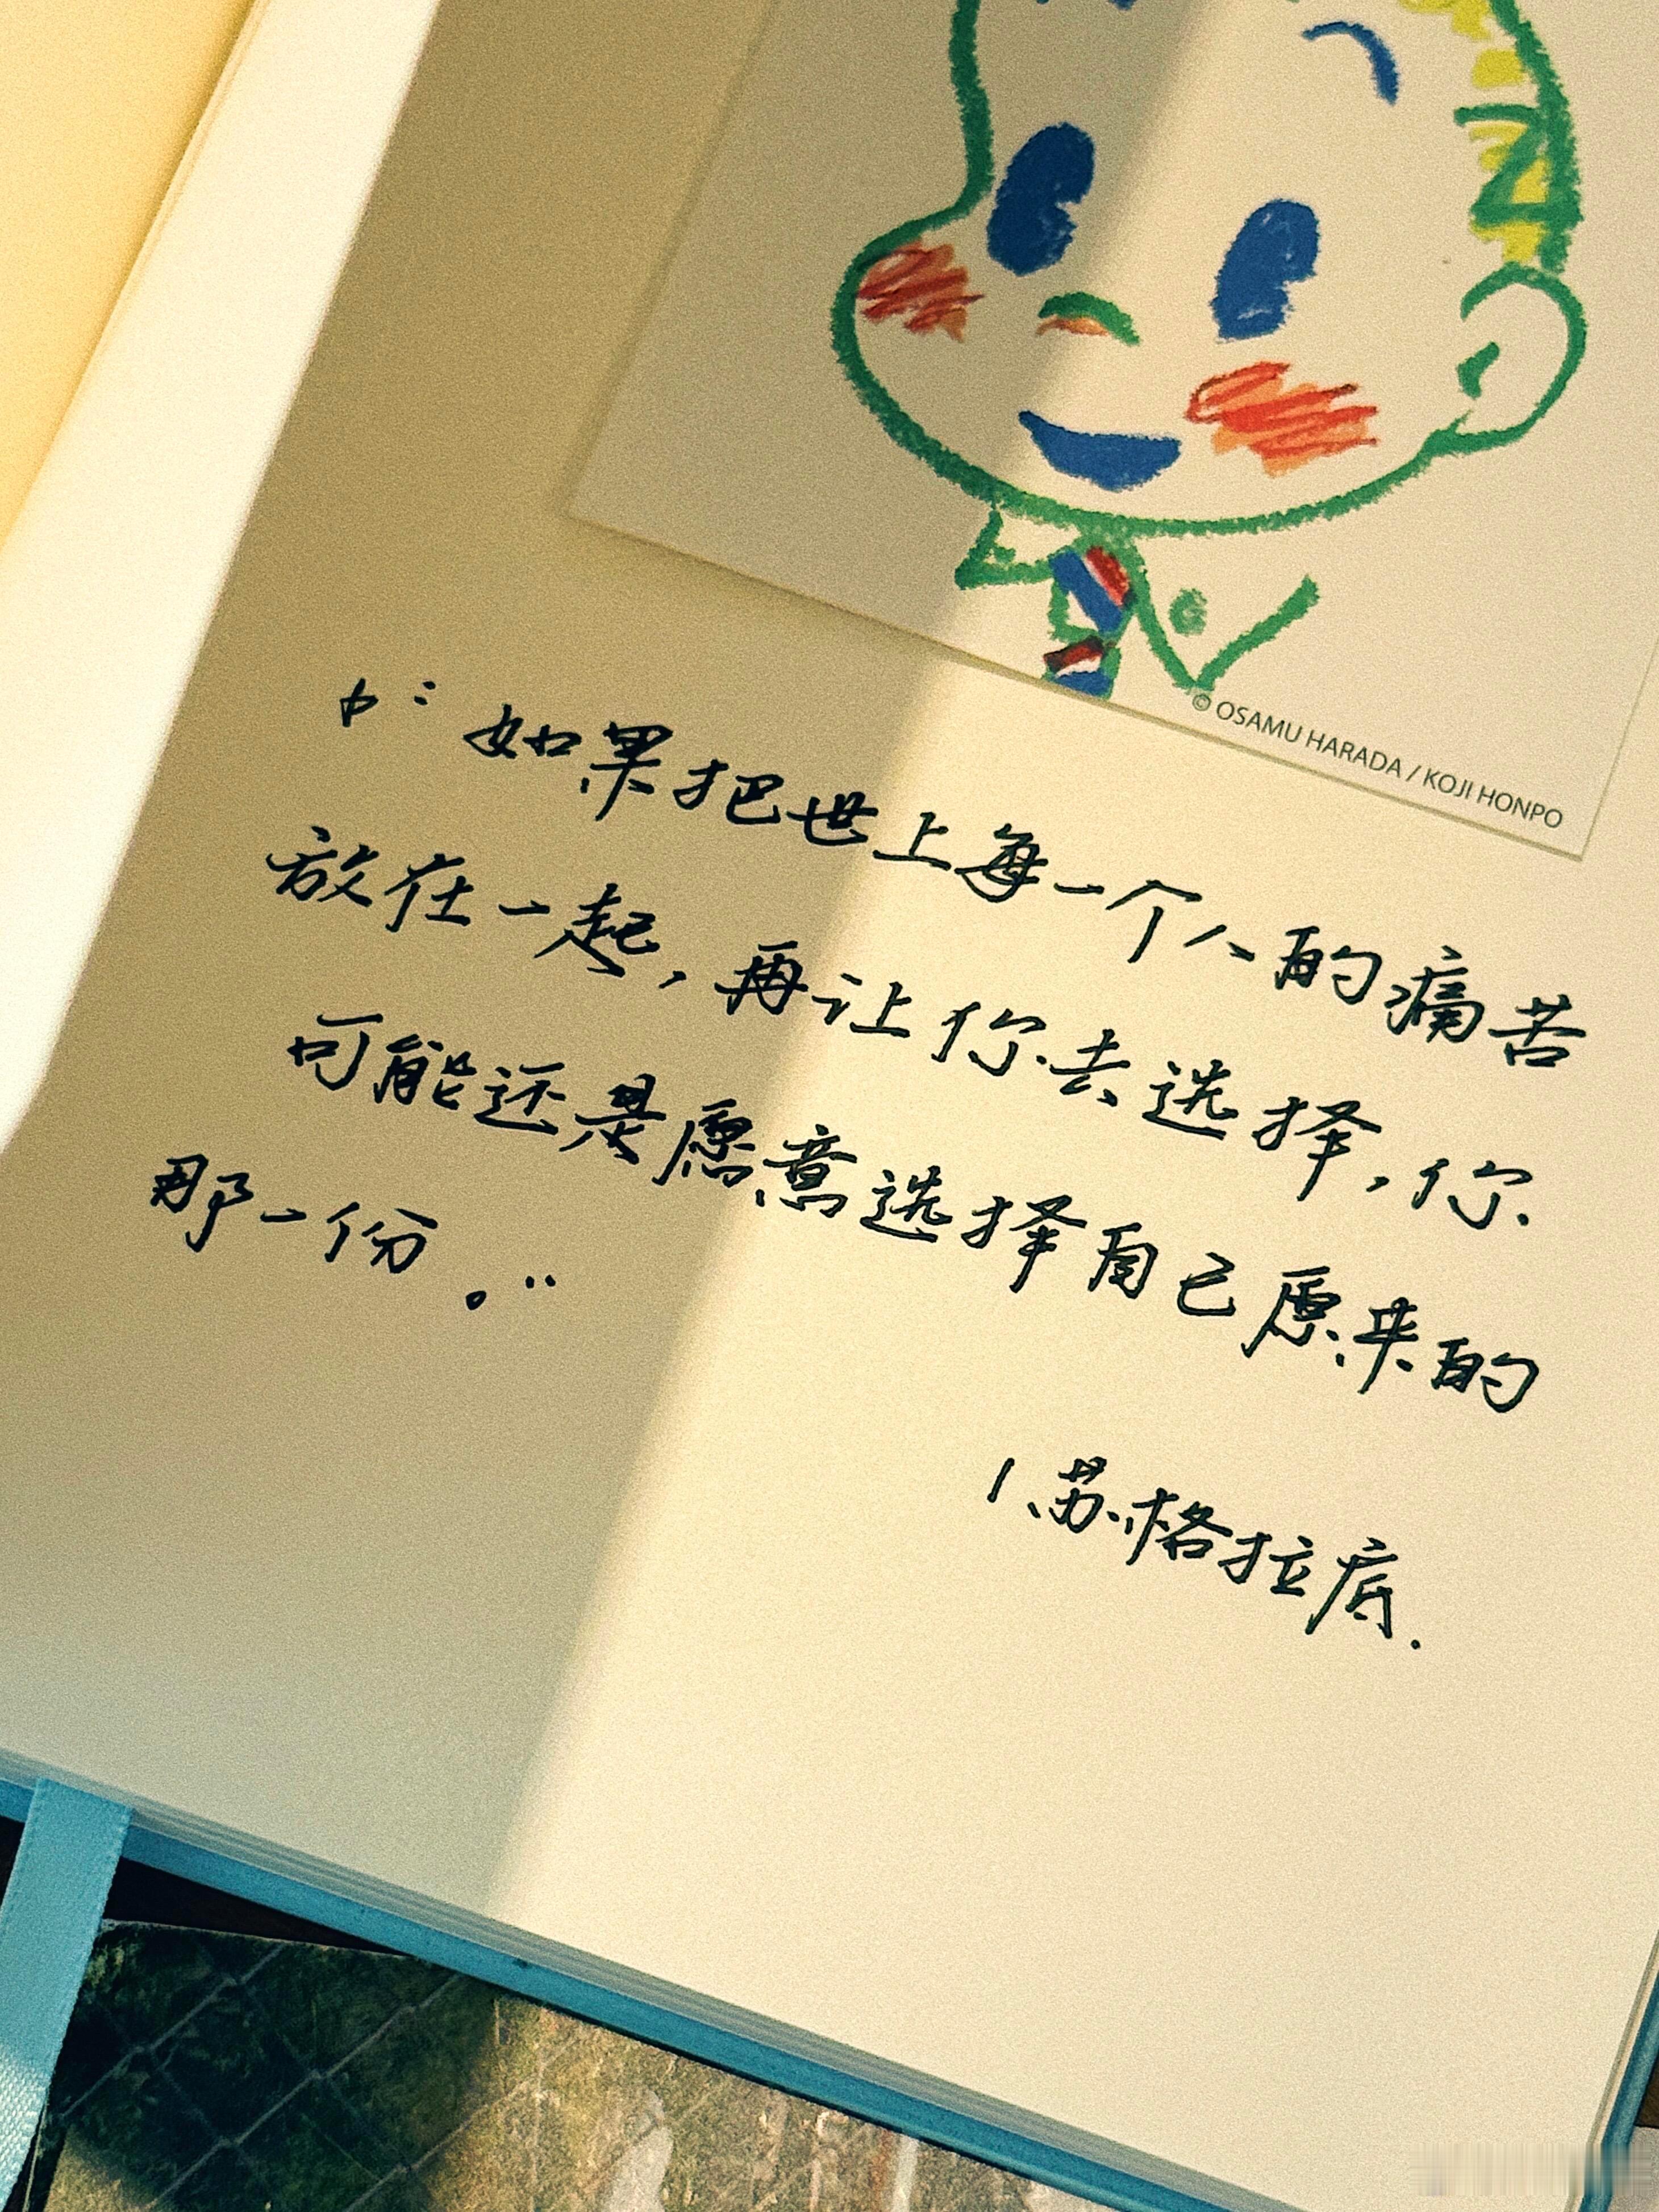 © OSAMU HARADA / KOJI HONPO
“如果把世上每一个人的痛苦
放在一起，再让你去选择，你
可能还是愿意选择自己原来的
那一份。”
苏格拉底.